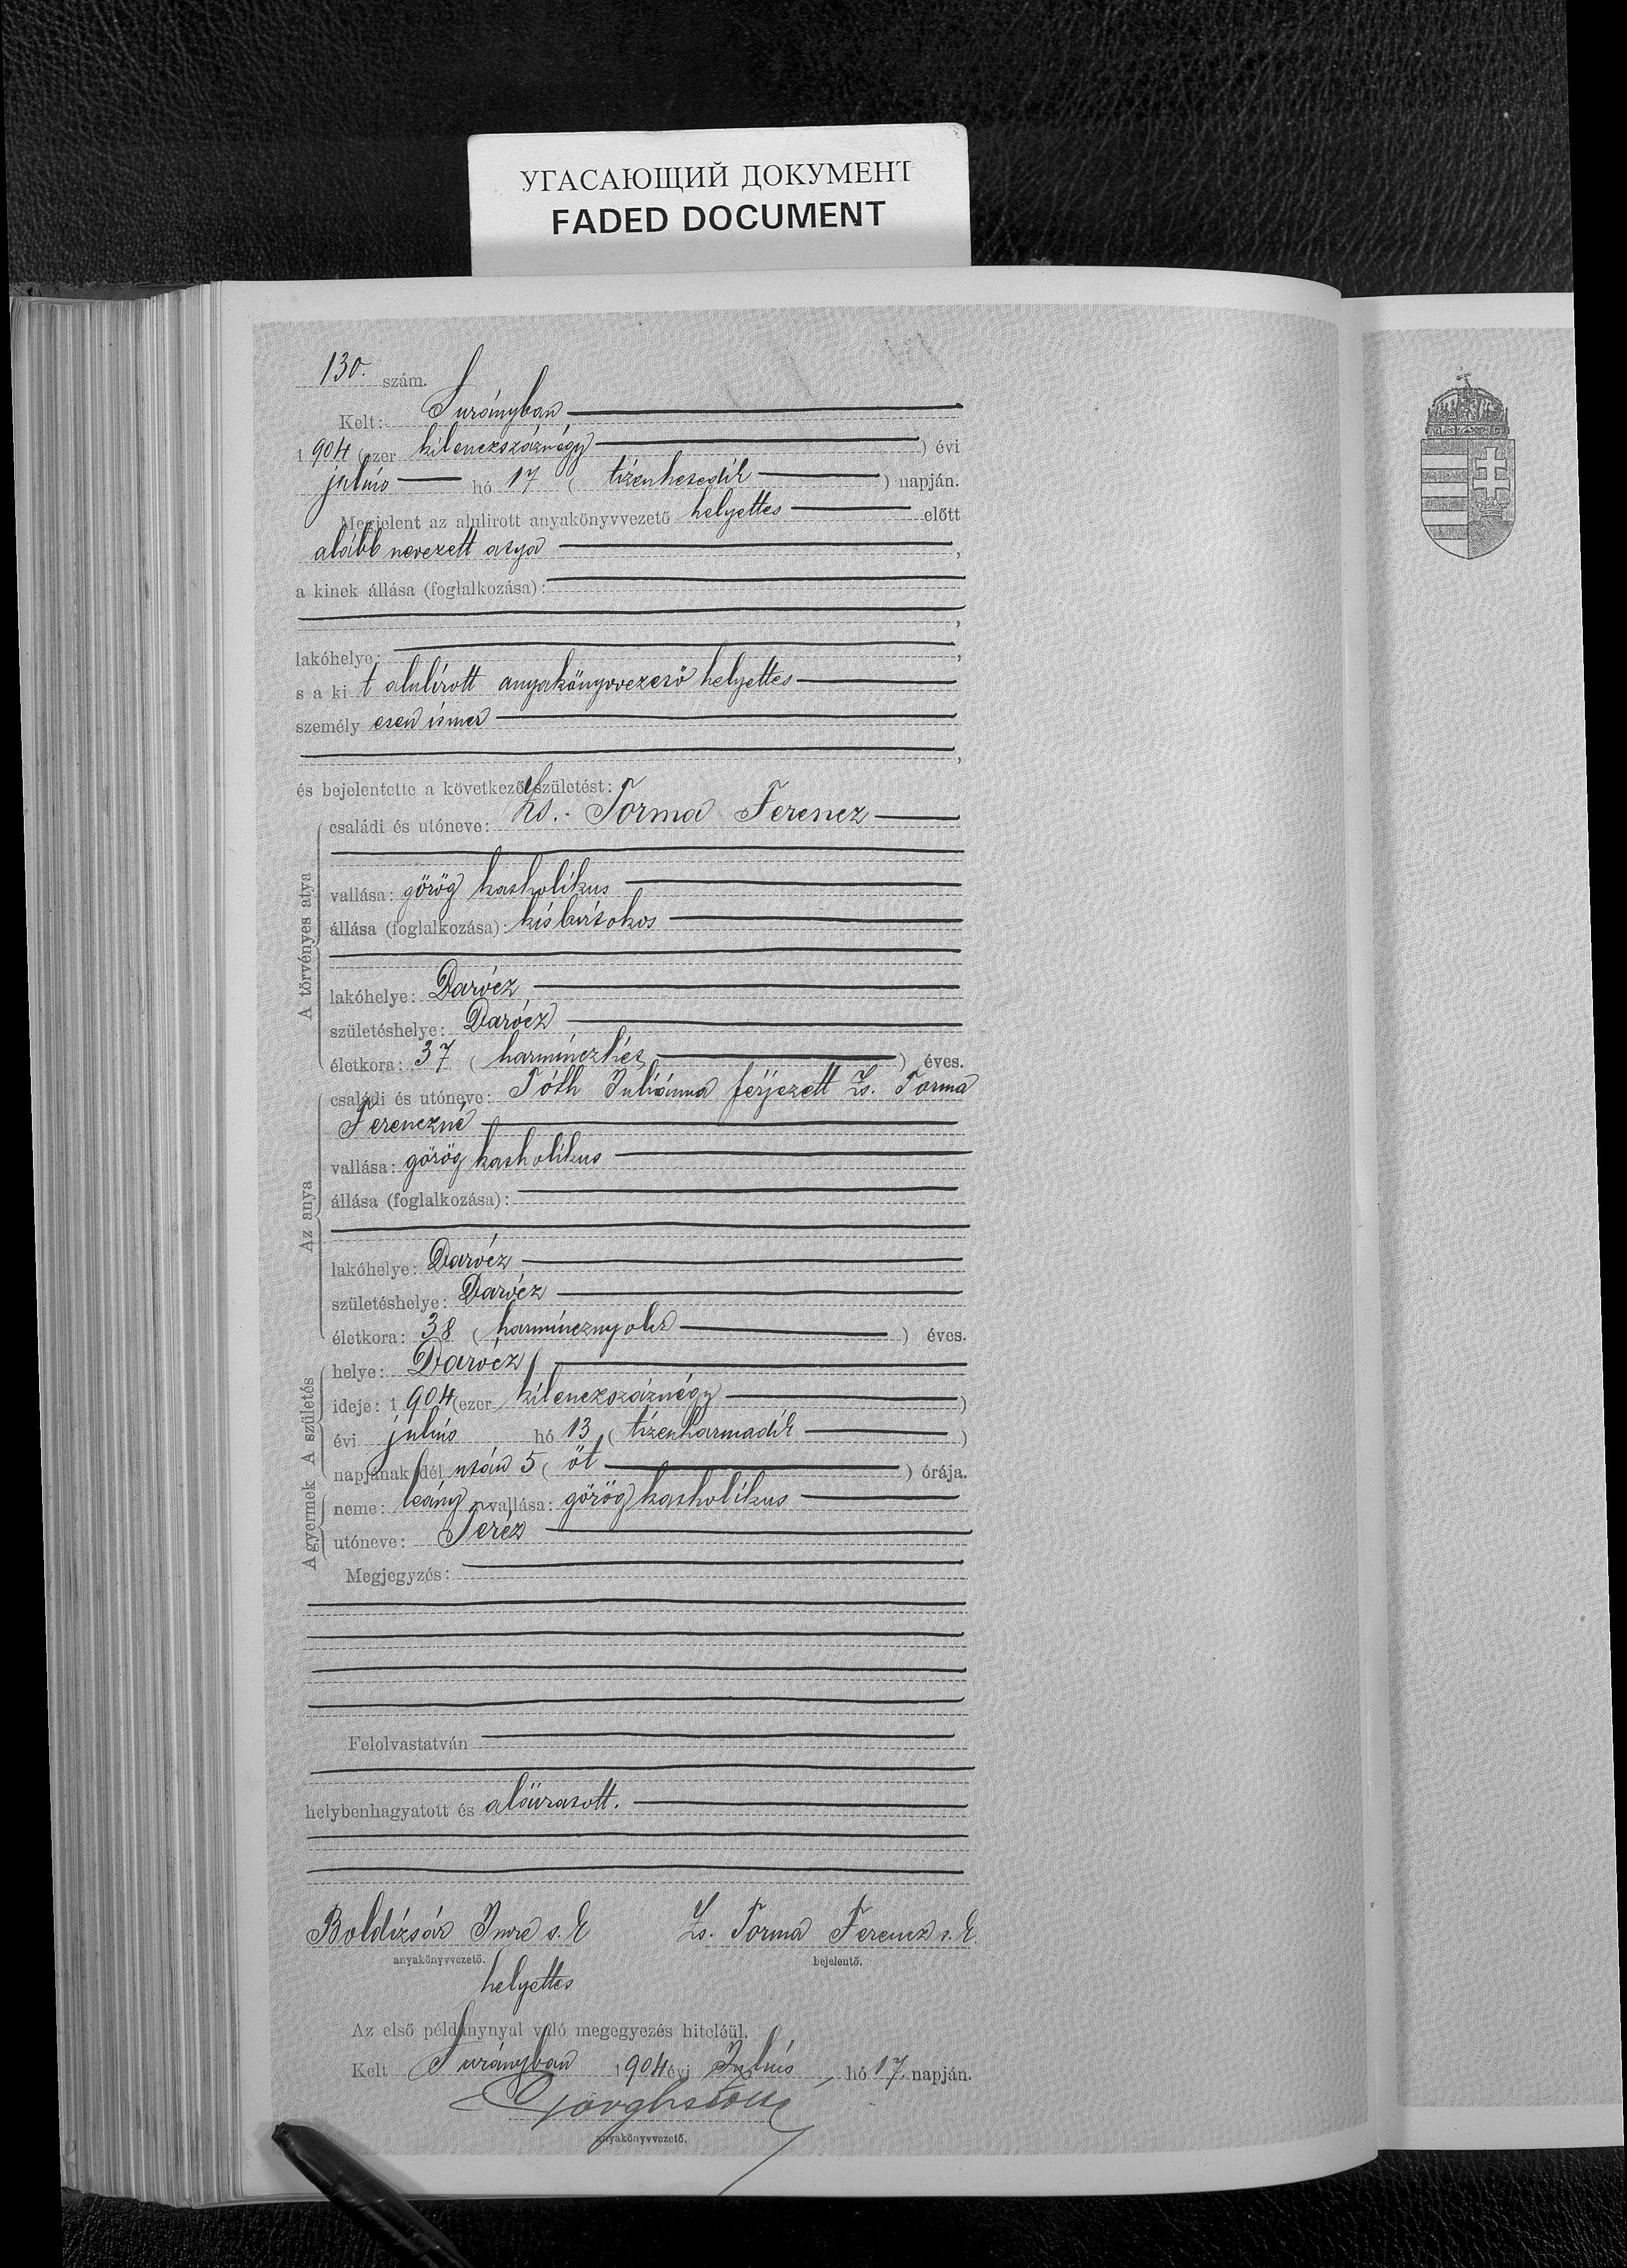 УГАСАЮЩИЙ ДОКУМЕНТ
FADED DOCUMENT
130. szám.
Kelt: Surányban
1904 (ezer kilenczszáznégy) évi
julius hó 17 ( tizenhetedik ) napján.
Megjelent az alulirott anyakönyvvezető helyettes előtt
alább nevezett atya ,
a kinek állása (foglalkozása):
,
lakóhelye: ,
s a ki t alulírott anyakönyvvezető helyettes
személy esen ismer
,
és bejelentette a következő születést:
családi és utóneve: Zs. Torma Ferencz
A törvényes atya
vallása: görög katholikus
állása (foglalkozása): kisbirtokos
lakóhelye: Darócz
születéshelye: Darócz
életkora: 37 ( harminczhét ) éves.
családi és utóneve: Tóth Juliánna férjezett Zs. Torma
Ferenczné
Az anya
vallása: görög katholikus
állása (foglalkozása):
lakóhelye: Darócz
születéshelye: Darócz
életkora: 38 ( harmincznyolcz ) éves.
A születés
helye: Darócz
ideje: 1904 (ezer kilenczszáznégy )
évi julius hó 13 ( tizenharmadik )
napjának dél után 5 ( öt ) órája.
A gyermek
neme: leány vallása: görög katholikus
utóneve: Teréz
Megjegyzés:
Felolvastatván
helybenhagyatott és aláiratott.
Boldizsár Imre s. k Zs. Torma Ferencz s. k.
anyakönyvvezető. bejelentő.
helyettes
Az első példánynyal való megegyezés hiteléül.
Kelt Surányban 1904 évi Julius hó 17. napján.
anyakönyvvezető.